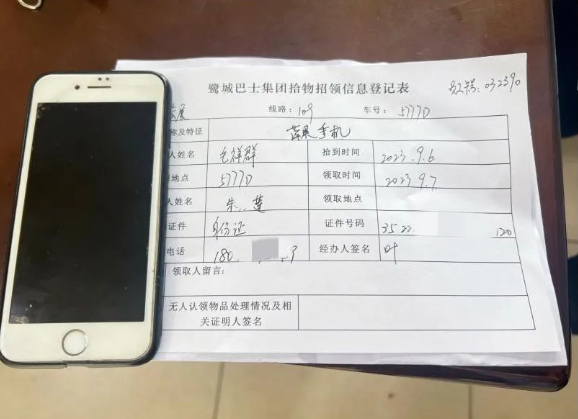 鹭城巴士集团拾物招领信息登记表
线路：109 车号：5777D
称及特征 苹果手机
人姓名 毛祥群 拾到时间 2023.9.6
地点 5777D 领取时间 2023.9.7
人姓名 朱 莲 领取地点
证件 身份证 证件号码 3522 120
电话 180 9 经办人签名 叶
领取人留言：
无人认领物品处理情况及相
关证明人签名